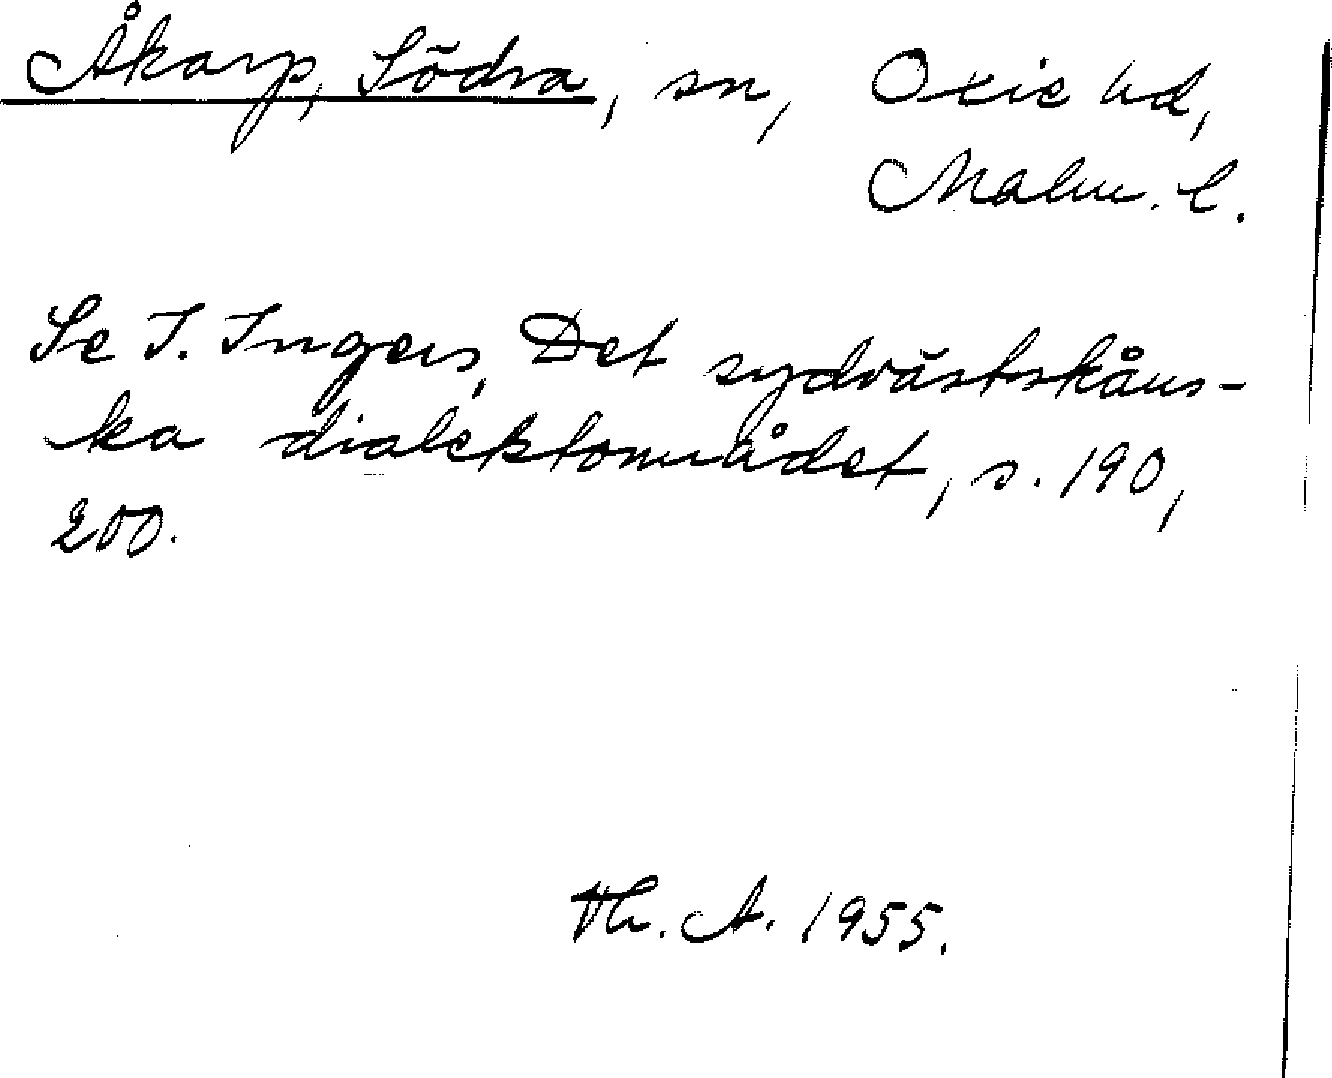 Åkarp, Södra, sn, Oxie hd,
Malm. l.
Se I. Ingers, Det sydvästskåns-
ka dialektområdet, s. 190,
200.
Th. A. 1955.